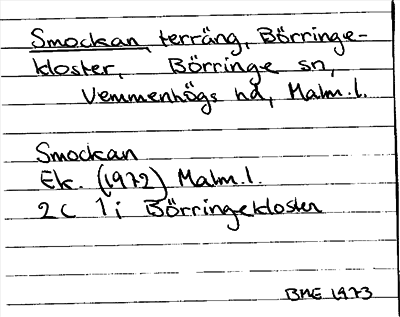 Smockan, terräng, Börringe-
kloster, Börringe sn,
Vemmenhögs hd, Malm.l.
Smockan
Ek. (1972) Malm.l.
2 C 1 i Börringekloster
BME 1973